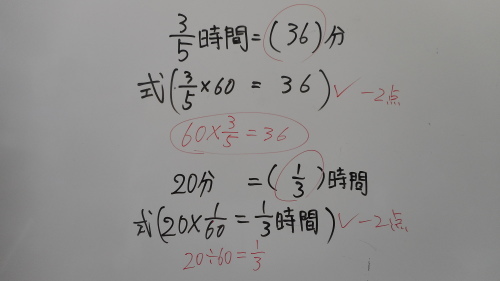 3/5時間=(36)分
式(3/5×60 = 36)✓-2点
60×3/5=36
20分 =(1/3)時間
式(20×1/60=1/3時間)✓-2点
20÷60=1/3